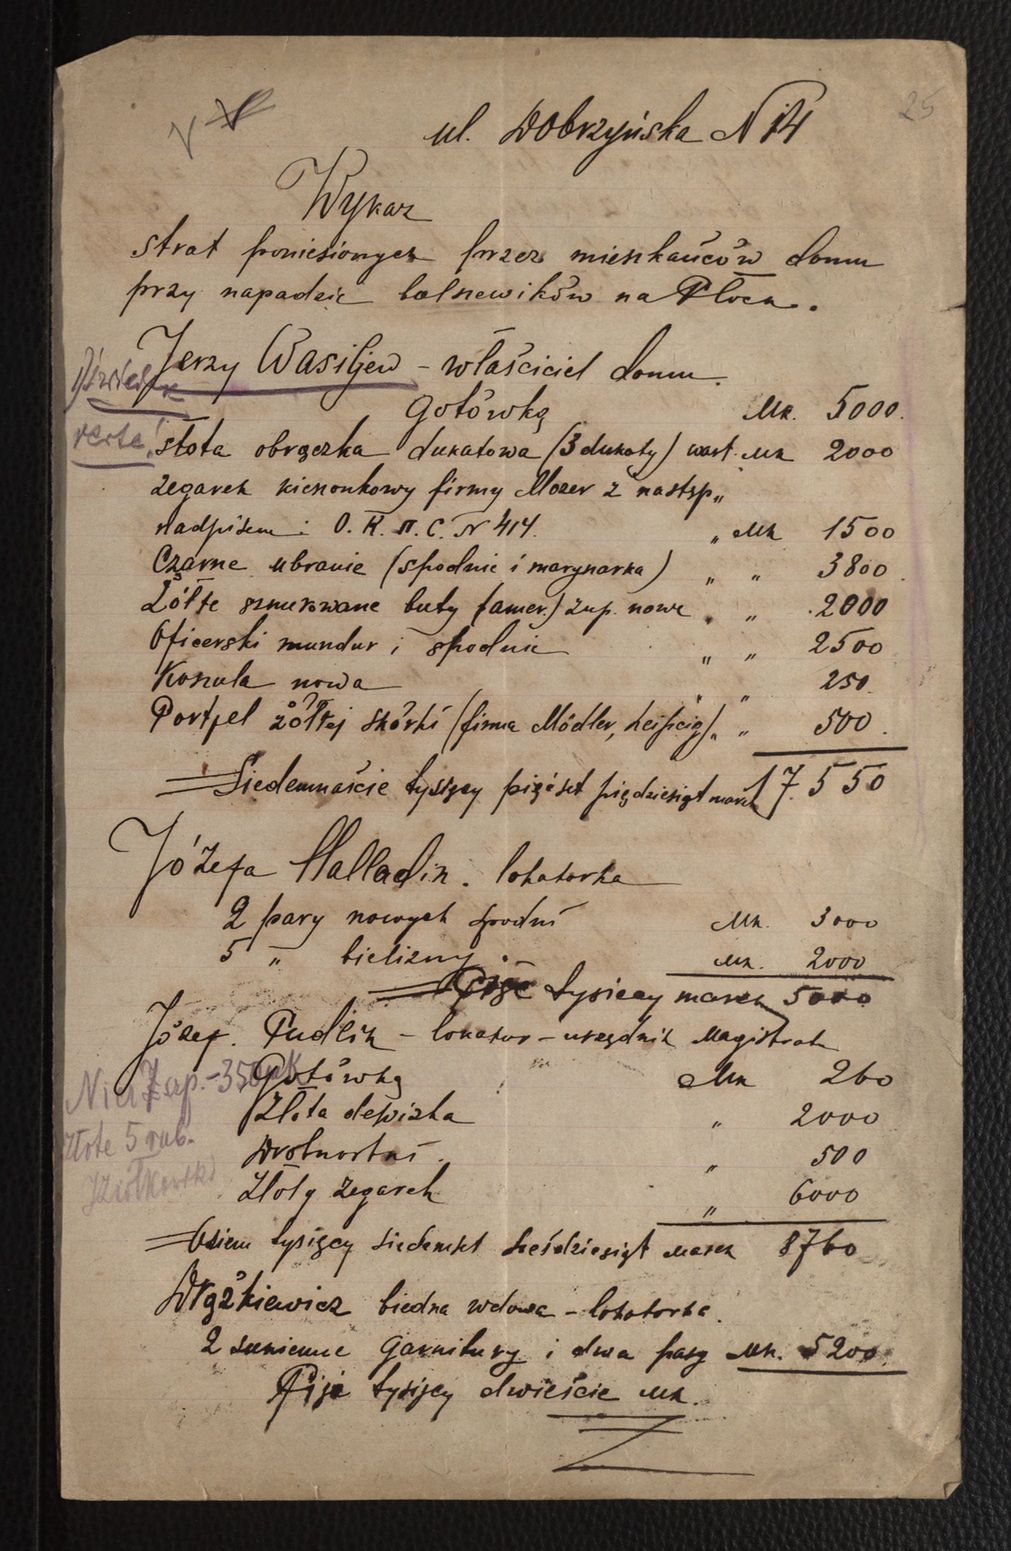 25
ul. Dobrzyńska N 14
Wykaz
strat poniesionych przez mieszkańców domu
przy napadzie bolszewików na Płock.
Jerzy Wasiljew - właściciel domu.
Gotówką Mk. 5000.
złota obrączka dukatowa (3 dukaty) wart. Mk 2000
zegarek kieszonkowy firmy Mozer z następ„
nadpisem: O. K. П. С. N 414. „ Mk 1500
Czarne ubranie (spodnie i marynarka) „ „ 3800
Żółte sznurowane buty (amer.) zup. nowe „ „ 2000
Oficerski mundur i spodnie „ „ 2500
Koszula nowa „ „ 250.
Portfel żółtej skórki (firma Mödler, Leipcig). „ „ 500.
Siedemnaście tysięcy pięćset pięćdziesiąt marek 17.550
Józefa Malladin. lokatorka
2 pary nowych spodni Mk. 3000
5 „ bielizny. Mk. 2000
Pięć tysięcy marek 5000
Józef. Pudlik - lokator - urzędnik Magistratu
Gotówką Mk 260
Złota dewizka „ 2000
Drobnostki. „ 500
Złoty zegarek „ 6000
Osiem tysięcy siedemset sześdziesiąt marek 8760
Wążkiewicz biedna wdowa - lokatorka.
2 sukienne garnitury i dwa pary Mk. 5200.
Pięć tysięcy dwieście Mk.